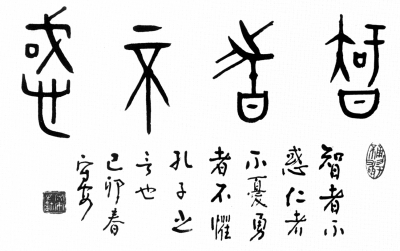 智者不惑
智者不
惑仁者
不憂勇
者不懼
孔子之
言也
己卯春